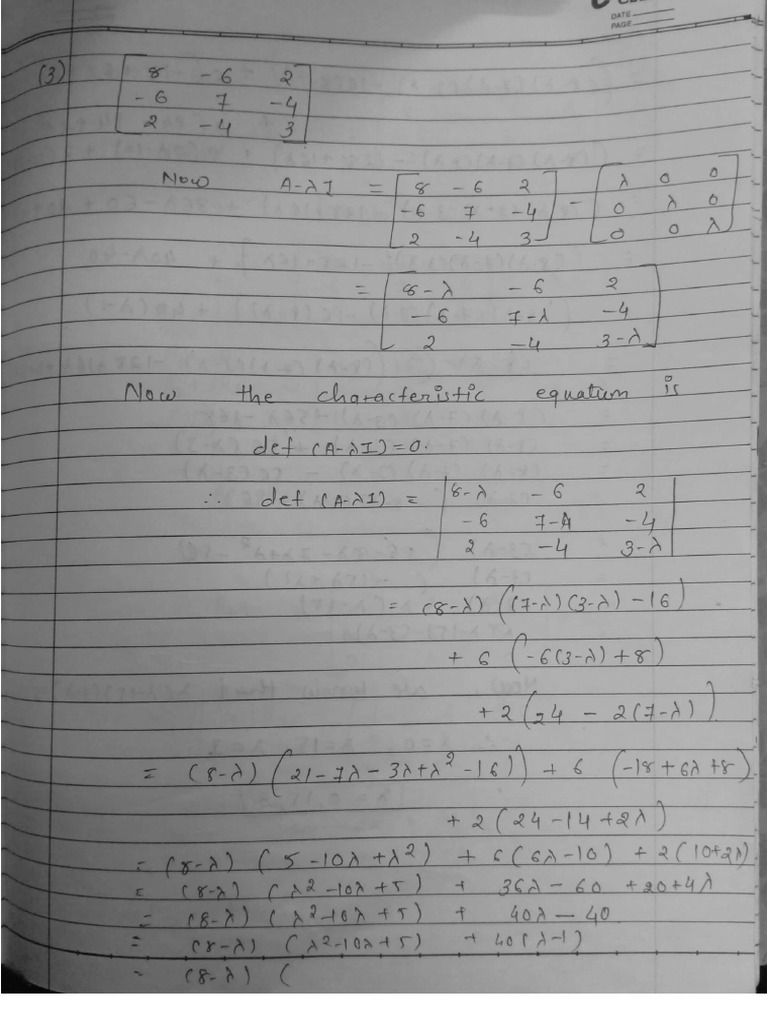 DATE
PAGE
(3) [8 -6 2
-6 7 -4
2 -4 3]
Now A-λI = [8 -6 2
-6 7 -4
2 -4 3] - [λ 0 0
0 λ 0
0 0 λ]
= [8-λ -6 2
-6 7-λ -4
2 -4 3-λ]
Now the characteristic equatium is
def (A-λI)=0.
∴ def (A-λI) = |8-λ -6 2
-6 7-λ -4
2 -4 3-λ|
= (8-λ) ((7-λ)(3-λ)-16)
+ 6 (-6(3-λ)+8)
+2(24 - 2(7-λ)).
= (8-λ) (21-7λ-3λ+λ²-16)) + 6 (-18+6λ+8)
+ 2 (24-14+2λ)
= (8-λ) (5-10λ+λ²) + 6(6λ-10) + 2(10+2λ)
= (8-λ) (λ²-10λ+5) + 36λ-60 +20+4λ
= (8-λ) (λ²-10λ+5) + 40λ-40.
= (8-λ) (λ²-10λ+5) +40(λ-1)
= (8-λ) (